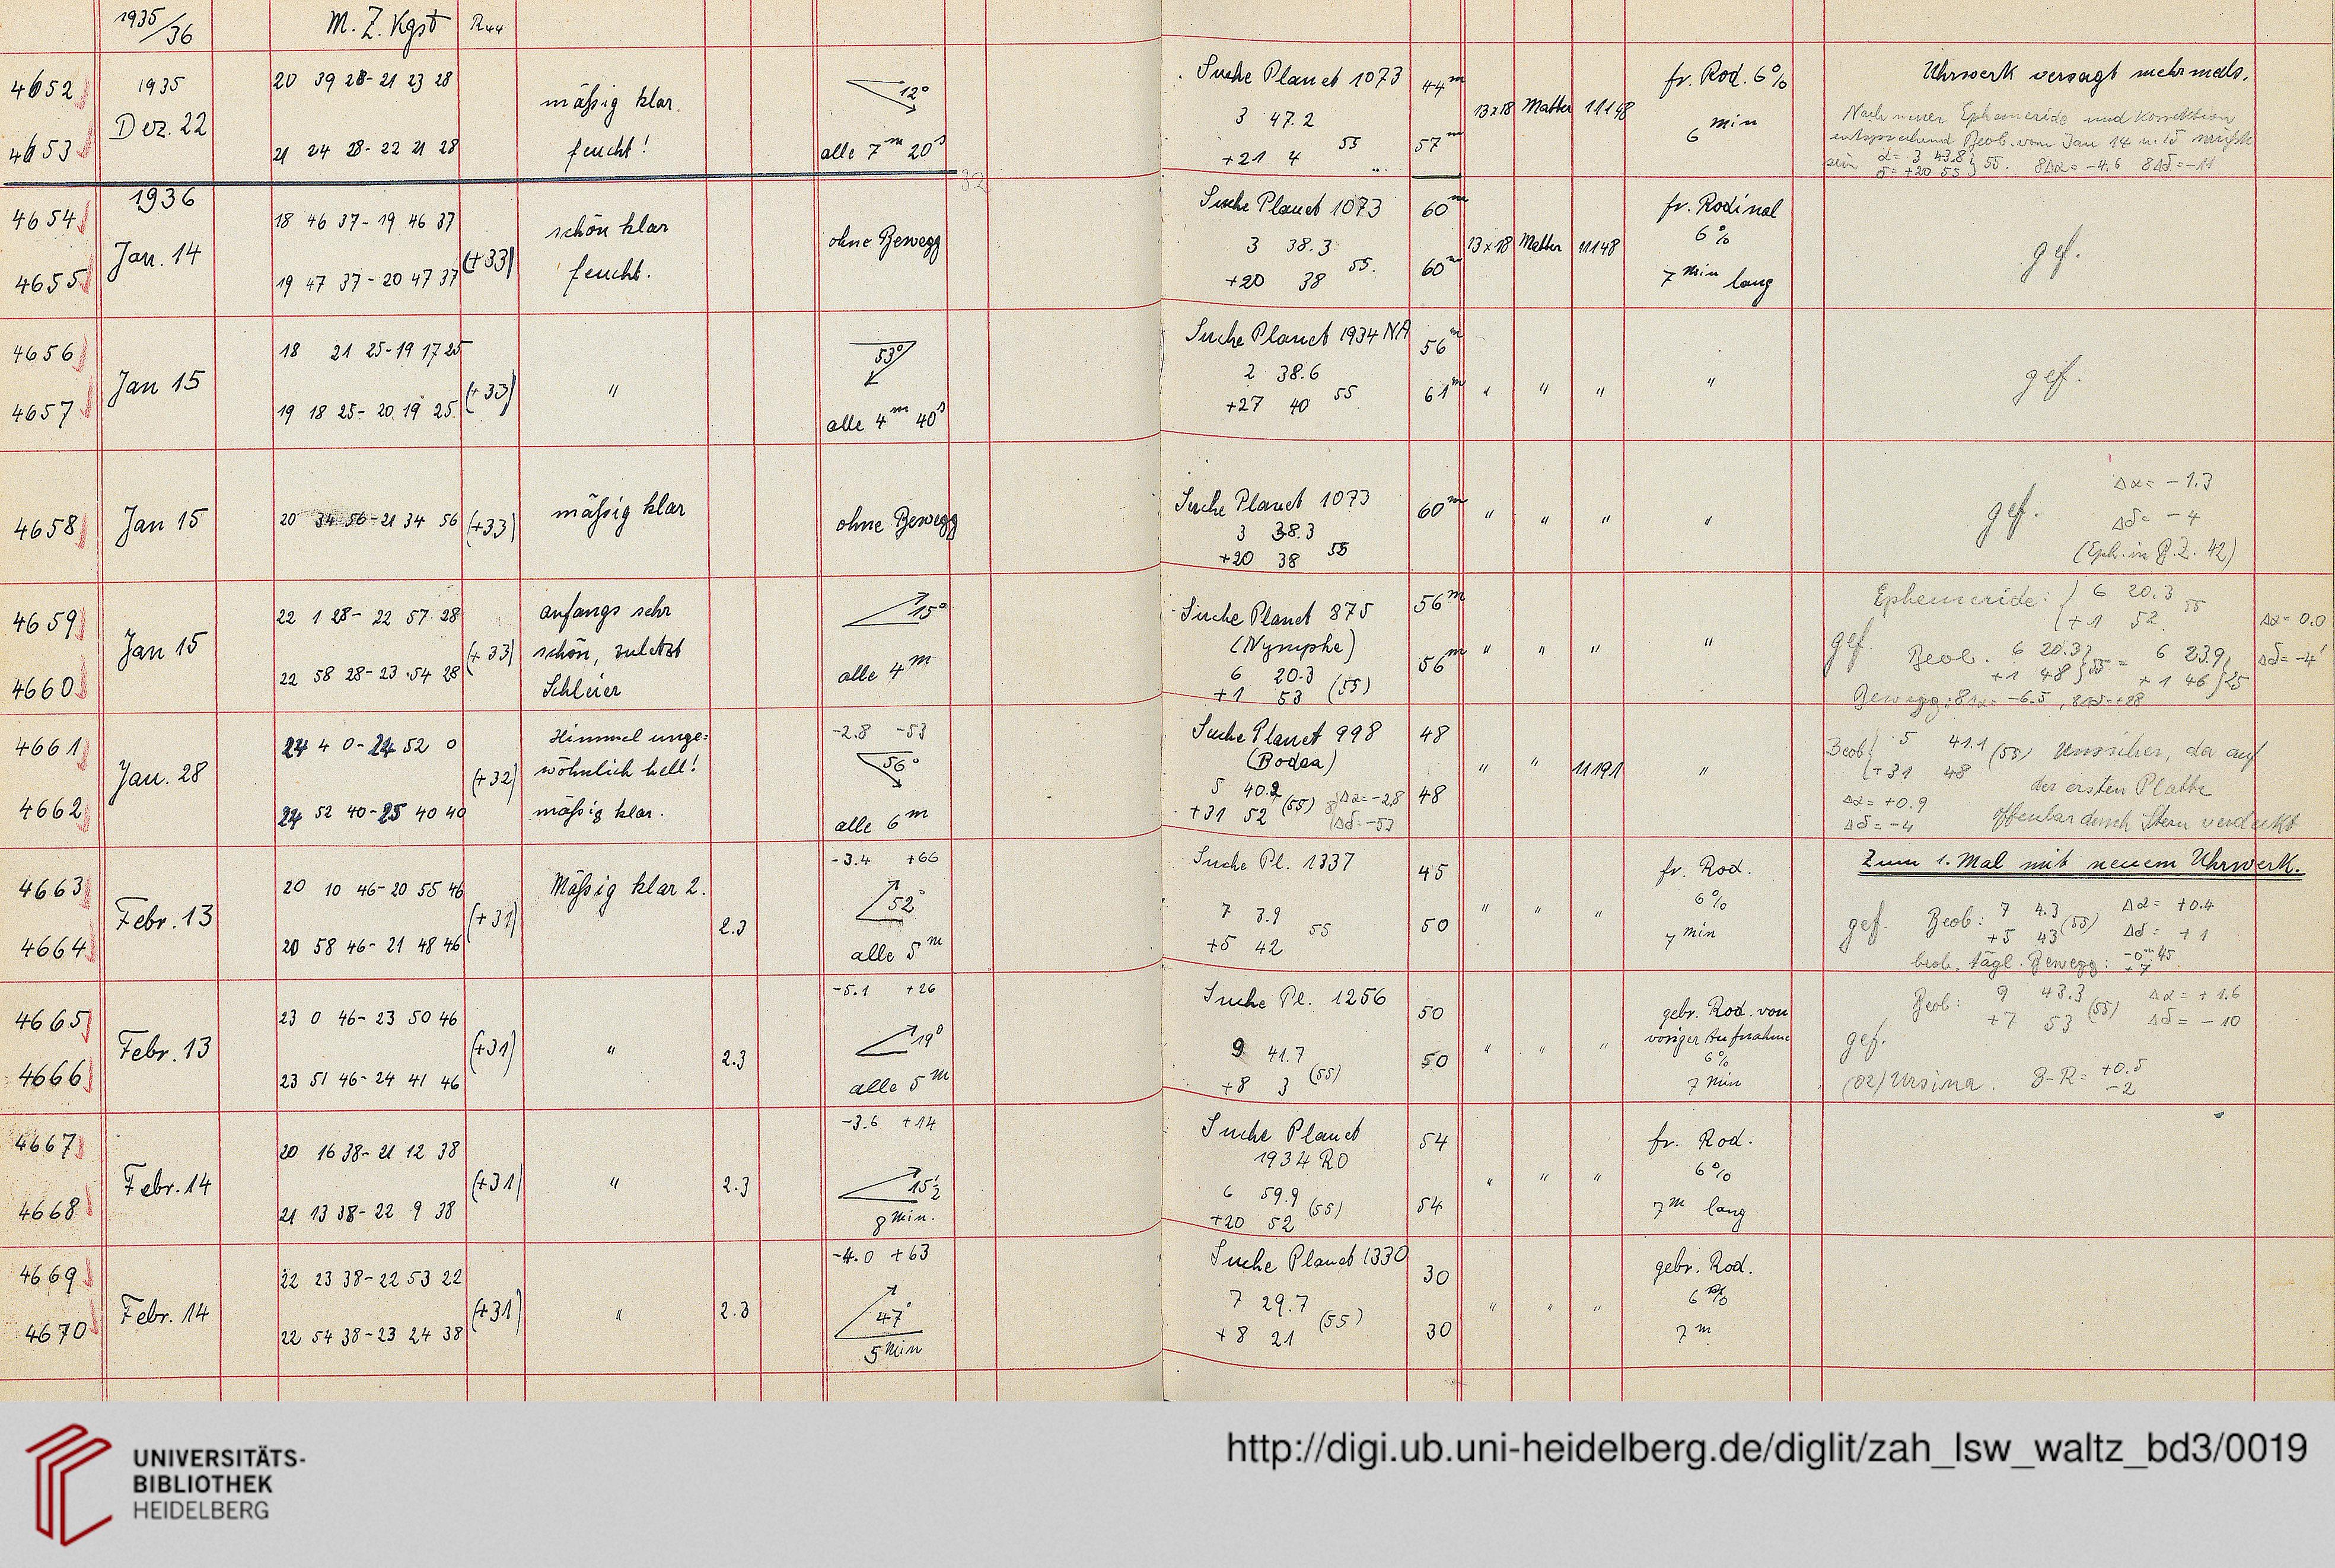 1935/36 M. Z. Kgst
4652 1935 20 39 28 - 21 23 28 mäßig klar. 12° Suche Planet 1073 44m 13x18 Matter 11148 fr. Rod. 6% Uhrwerk versagt mehrmals.
Dez. 22 3 47.2 6 min
4653 21 24 28 - 22 21 28 feucht! alle 7m 20s +21 4 55 57m
Nach neuer Ephemeride und Korrektion
entsprechend Beob. vom Jan 14 u. 15
sein α = 3 43.8 δ = +20 55 } 55. 8Δα = -4.6 8Δδ = -11
32
1936
4654 18 46 37 - 19 46 37 schön klar Suche Planet 1073 60m fr. Rodinal
Jan. 14 (+33) ohne Bewegg 3 38.3 13x18 Matter 11148 6% gef.
4655 19 47 37 - 20 47 37 feucht. +20 38 55. 60m 7 min lang
4656 18 21 25 - 19 17 25 53° Suche Planet 1934 NA 56m
Jan 15 (+33) " 2 38.6 " " " " gef.
4657 19 18 25 - 20 19 25. alle 4m 40s +27 40 55 61m
4658 Jan 15 20 34 56 - 21 34 56 (+33) mäßig klar ohne Bewegg Suche Planet 1073 60m " " " " gef. Δα = -1.3
3 38.3 Δδ = -4
+20 38 55 (Eph. in B.Z. 42)
4659 22 1 28 - 22 57 28 anfangs sehr 15° Suche Planet 875 56m Ephemeride: { 6 20.3 +1 52 55 Δα = 0.0
Jan 15 (+33) schön, zuletzt (Nymphe) " " " " gef. Beob. 6 20.3 +1 48 } 55 = 6 23.9 +1 46 } 25 Δδ = -4'
4660 22 58 28 - 23 54 28 Schleier alle 4m 6 20.3 56m
+1 53 (55) Bewegg: 8Δα = -6.5, 8Δδ = +28
4661 24 4 0 - 24 52 0 Himmel unge= -2.8 -53 Suche Planet 998 48 Beob { 5 41.1 +31 48 (55) Unsicher, da auf
Jan. 28 (+32) wöhnlich hell! 56° (Bodea) " " 11191 " der ersten Platte
4662 24 52 40 - 25 40 40 mäßig klar. alle 6m 5 40.2 48 Δα = +0.9
+31 52 (55) 8 { Δα = -2.8 Δδ = -53 Δδ = -4 offenbar durch Stern verdeckt
4663 20 10 46 - 20 55 46 Mäßig klar 2. -3.4 +66 Suche Pl. 1337 45 fr. Rod. Zum 1. Mal mit neuem Uhrwerk.
Febr. 13 (+31) 2.3 52° 7 3.9 " " " 6% gef. Beob: 7 4.3 +5 43 (55) Δα = +0.4 Δδ = +1
4664 20 58 46 - 21 48 46 alle 5m +5 42 55 50 7 min beob. tägl. Bewegg: -0m.45 +7
4665 23 0 46 - 23 50 46 -5.1 +26 Suche Pl. 1256 50 gebr. Rod. von Beob: 9 43.3 +7 53 (55) Δα = +1.6 Δδ = -10
Febr. 13 (+31) " 2.3 19° 9 41.7 " " " voriger Aufnahme gef.
4666 23 51 46 - 24 41 46 alle 5m +8 3 (55) 50 6% 7 Min Ursina. B-R = +0.5 -2
4667 20 16 38 - 21 12 38 -3.6 +14 Suche Planet 54 fr. Rod.
Febr. 14 (+31) " 2.3 15½ 1934 RO " " " 6%
4668 21 13 38 - 22 9 38 8 Min. 6 59.9 +20 52 (55) 54 7m lang
4669 22 23 38 - 22 53 22 -4.0 +63 Suche Planet 1330 30 gebr. Rod.
Febr. 14 (+31) " 2.3 47° 7 29.7 " " " 6%
4670 22 54 38 - 23 24 38 5 Min +8 21 (55) 30 7m
UNIVERSITÄTS-
BIBLIOTHEK
HEIDELBERG
http://digi.ub.uni-heidelberg.de/diglit/zah_lsw_waltz_bd3/0019